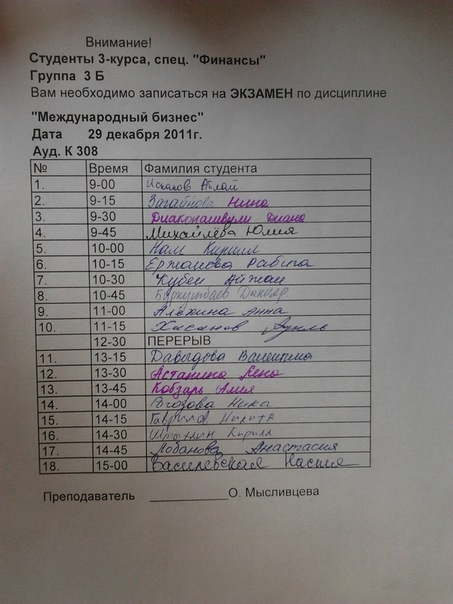 Внимание!
Студенты 3-курса, спец. "Финансы"
Группа 3 Б
Вам необходимо записаться на ЭКЗАМЕН по дисциплине
"Международный бизнес"
Дата 29 декабря 2011г.
Ауд. К 308
№ Время Фамилия студента
1. 9-00 Исхаков Аблай
2. 9-15 Загайнова Нина
3. 9-30 Диаконашвили Диана
4. 9-45 Михайлёва Юлия
5. 10-00 Нам Кирилл
6. 10-15 Ержанова Рабига
7. 10-30 Кубен Айжан
8. 10-45 Данияр
9. 11-00 Алёхина Анна
10. 11-15 Хасанов
12-30 ПЕРЕРЫВ
11. 13-15 Давыдова Валентина
12. 13-30 Астанина Лена
13. 13-45 Кобзарь Алия
14. 14-00 Ника
15. 14-15 Гаврилов Никита
16. 14-30 Кирилл
17. 14-45 Лобанова Анастасия
18. 15-00 Василевская Настя
Преподаватель О. Мысливцева